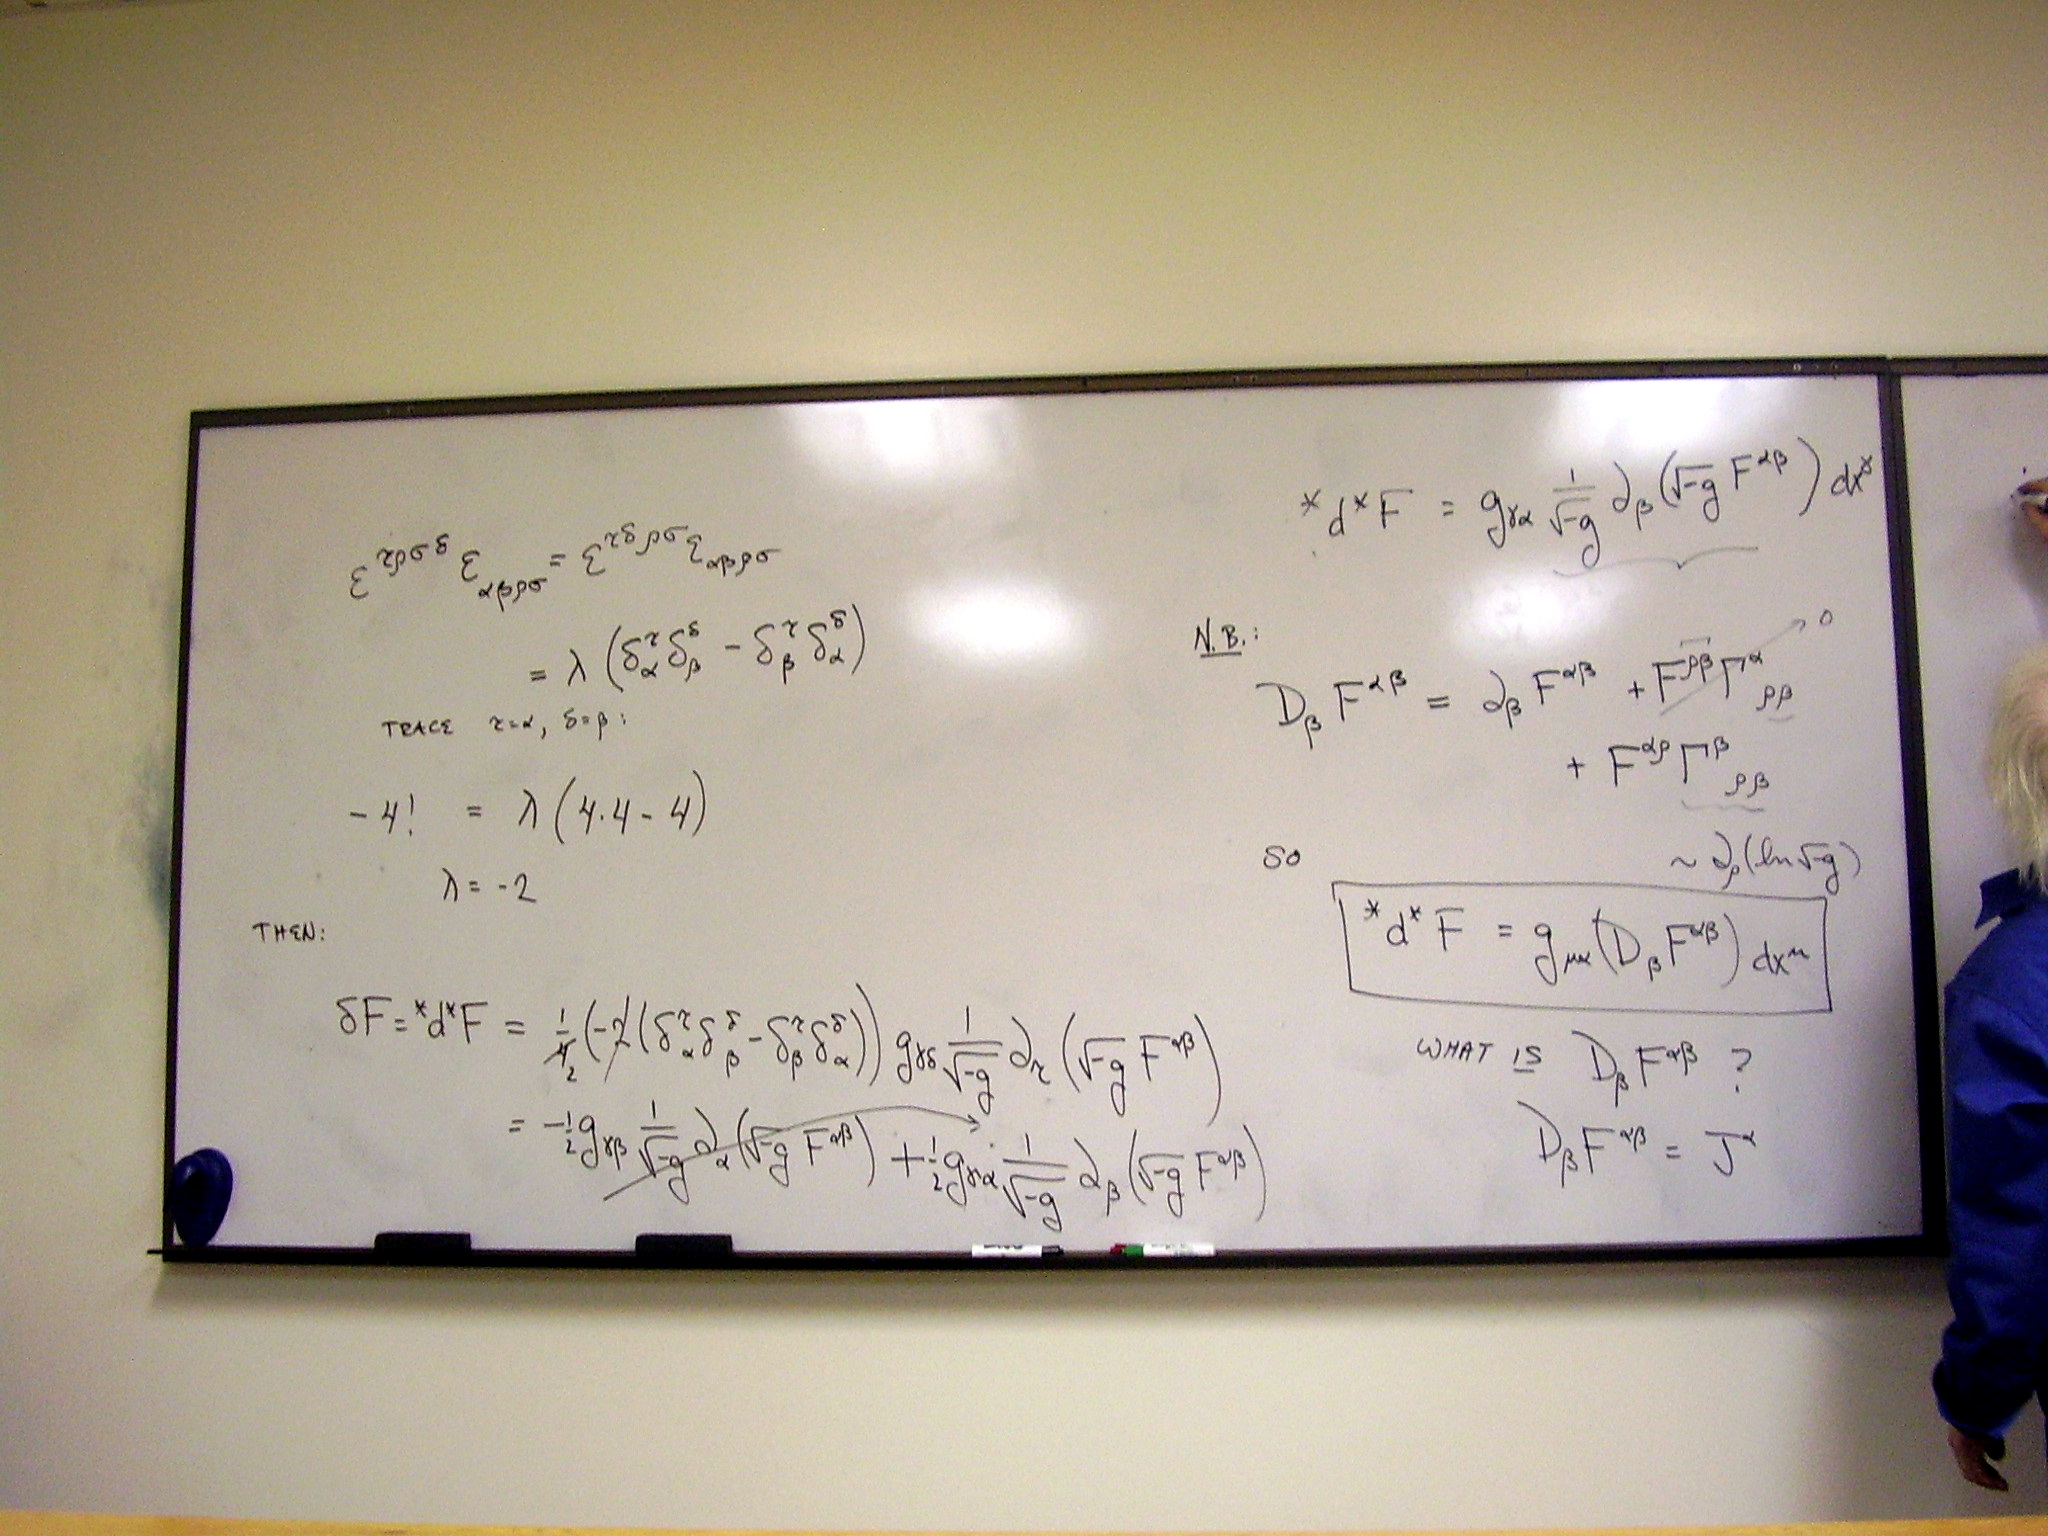 ε^{τρσδ} ε_{αβρσ} = ε^{τδρσ} ε_{αβρσ}
= λ (δ^τ_α δ^δ_β - δ^τ_β δ^δ_α)
TRACE τ=α, δ=β:
-4! = λ (4·4 - 4)
λ = -2
THEN:
δF = *d*F = 1/4 2 (-2 (δ^τ_α δ^δ_β - δ^τ_β δ^δ_α)) g_{γδ} 1/√-g ∂_τ (√-g F^{αβ})
= -1/2 g_{γβ} 1/√-g ∂_α (√-g F^{αβ}) + 1/2 g_{γα} 1/√-g ∂_β (√-g F^{αβ})
*d*F = g_{γα} 1/√-g ∂_β (√-g F^{αβ}) dx^γ
N.B.:
D_β F^{αβ} = ∂_β F^{αβ} + F^{ρβ} Γ^α_{ρβ} → 0
+ F^{αρ} Γ^β_{ρβ}
~ ∂_ρ (ln √-g)
SO
*d*F = g_{μα} (D_β F^{αβ}) dx^μ
WHAT IS D_β F^{αβ} ?
D_β F^{αβ} = J^α